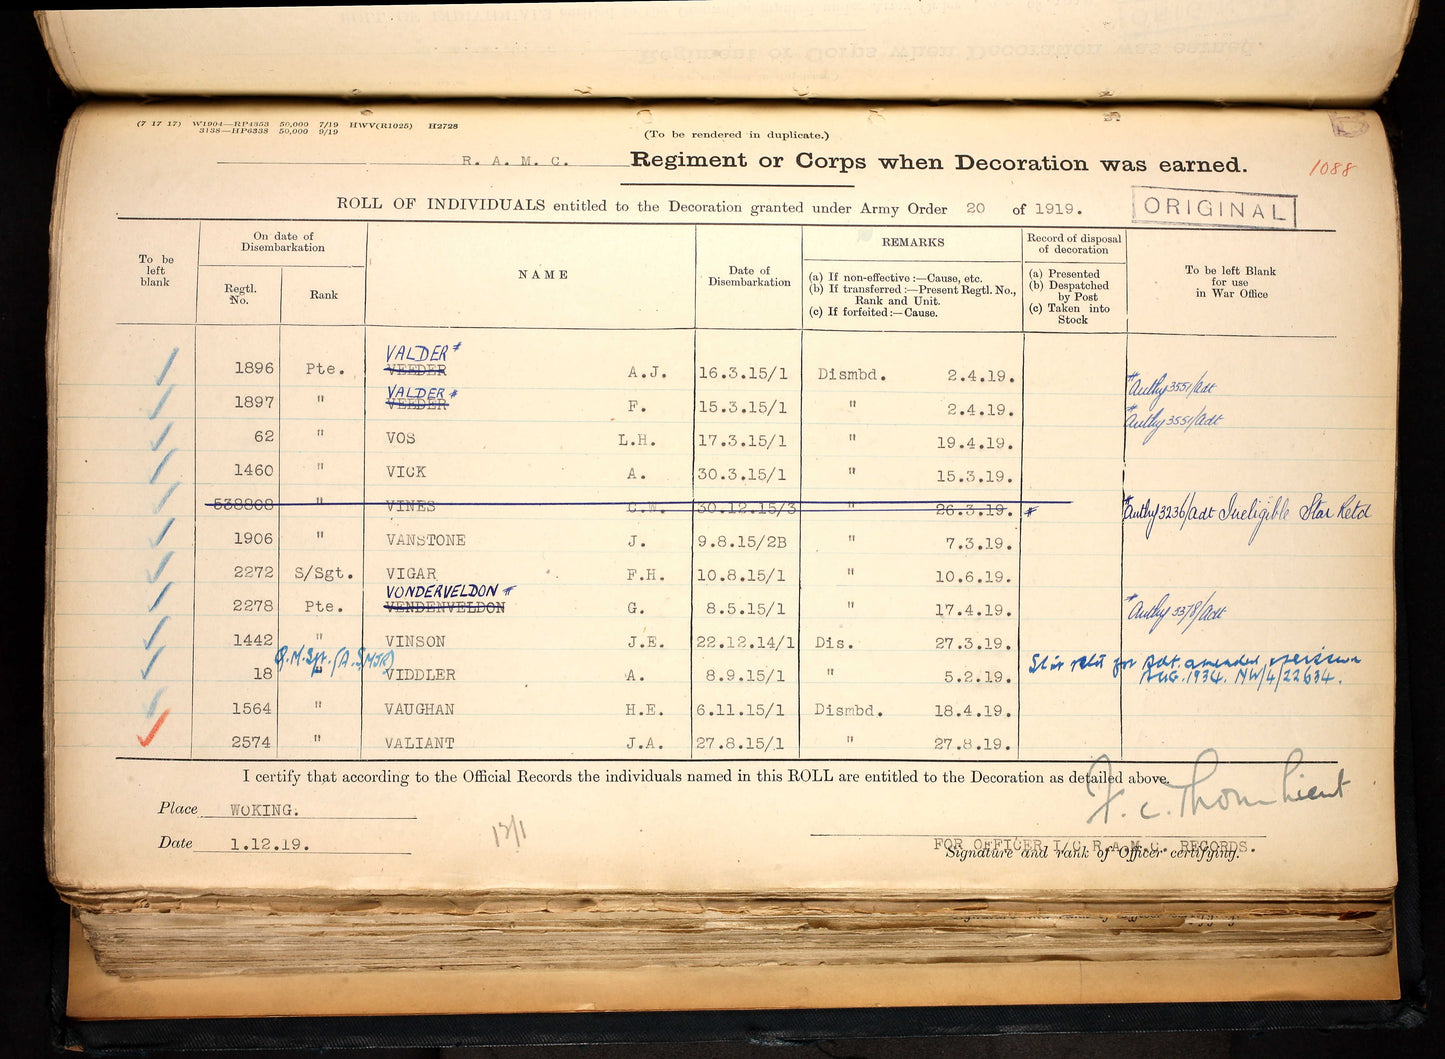 (7 17 17) W1904—RP4353 50,000 7/19 HWV(R1025) H2728
3138—HP6338 50,000 9/19
(To be rendered in duplicate.)
R. A. M. C. Regiment or Corps when Decoration was earned.
1088
ROLL OF INDIVIDUALS entitled to the Decoration granted under Army Order 20 of 1919.
ORIGINAL
To be left blank
On date of Disembarkation
Regtl. No.
Rank
NAME
Date of Disembarkation
REMARKS
(a) If non-effective :—Cause, etc.
(b) If transferred :—Present Regtl. No., Rank and Unit.
(c) If forfeited :—Cause.
Record of disposal of decoration
(a) Presented
(b) Despatched by Post
(c) Taken into Stock
To be left Blank for use in War Office
VALDER #
1896 Pte. VEEDER A.J. 16.3.15/1 Dismbd. 2.4.19. # Authy 3551/Adt
VALDER #
1897 " VEEDER F. 15.3.15/1 " 2.4.19. # Authy 3551/Adt
62 " VOS L.H. 17.3.15/1 " 19.4.19.
1460 " VICK A. 30.3.15/1 " 15.3.19.
538808 " VINES C.W. 30.12.15/3 " 26.3.19. # # Authy 3236/Adt Ineligible Star Retd
1906 " VANSTONE J. 9.8.15/2B " 7.3.19.
2272 S/Sgt. VIGAR F.H. 10.8.15/1 " 10.6.19.
VONDERVELDON #
2278 Pte. VENDENVELDON G. 8.5.15/1 " 17.4.19. # Authy 3378/Adt
1442 " VINSON J.E. 22.12.14/1 Dis. 27.3.19.
Q.M.Sgt. (A.SMJR)
18 " VIDDLER A. 8.9.15/1 " 5.2.19. for Adt. amended
AUG. 1934. NW/4/22634.
1564 " VAUGHAN H.E. 6.11.15/1 Dismbd. 18.4.19.
2574 " VALIANT J.A. 27.8.15/1 " 27.8.19.
I certify that according to the Official Records the individuals named in this ROLL are entitled to the Decoration as detailed above.
Place WOKING.
Date 1.12.19.
FOR OFFICER I/C R.A.M.C. RECORDS.
Signature and rank of Officer certifying.